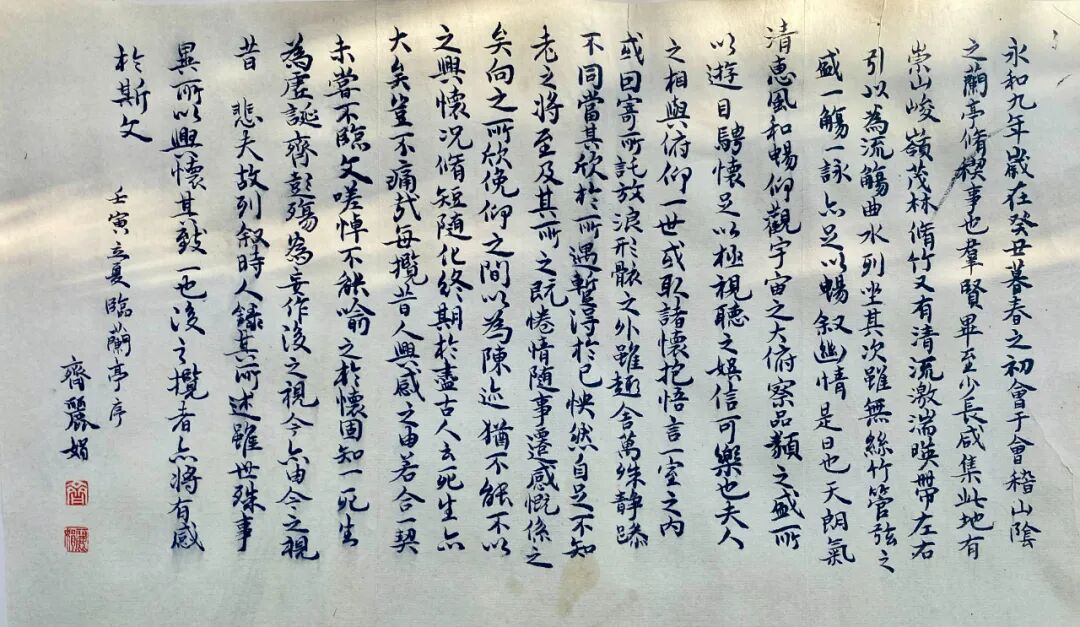 永和九年歲在癸丑暮春之初會于會稽山陰
之蘭亭脩稧事也羣賢畢至少長咸集此地有
崇山峻嶺茂林脩竹又有清流激湍暎帶左右
引以為流觴曲水列坐其次雖無絲竹管弦之
盛一觴一詠亦足以暢叙幽情是日也天朗氣
清惠風和暢仰觀宇宙之大俯察品類之盛所
以遊目騁懷足以極視聽之娛信可樂也夫人
之相與俯仰一世或取諸懷抱悟言一室之內
或因寄所託放浪形骸之外雖趣舍萬殊靜躁
不同當其欣於所遇暫得於己怏然自足不知
老之將至及其所之既惓情隨事遷感慨係之
矣向之所欣俛仰之間以為陳迹猶不能不以
之興懷況脩短隨化終期於盡古人云死生亦
大矣豈不痛哉每攬昔人興感之由若合一契
未嘗不臨文嗟悼不能喻之於懷固知一死生
為虛誕齊彭殤為妄作後之視今亦由今之視
昔 悲夫故列叙時人錄其所述雖世殊事
異所以興懷其致一也後之攬者亦將有感
於斯文
壬寅立夏臨蘭亭序
齊麗娟
齊
麗娟